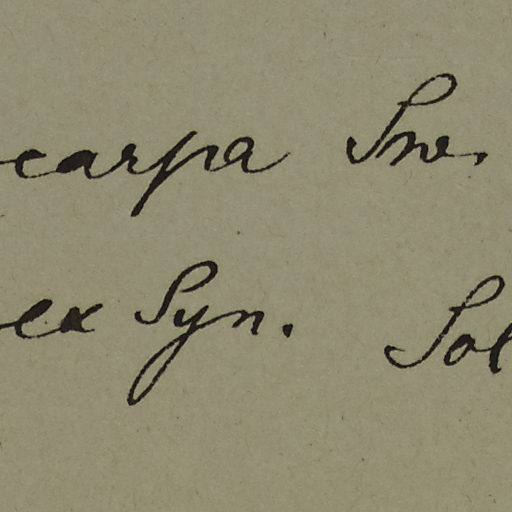 carpa Sm.
ex Syn. Sol